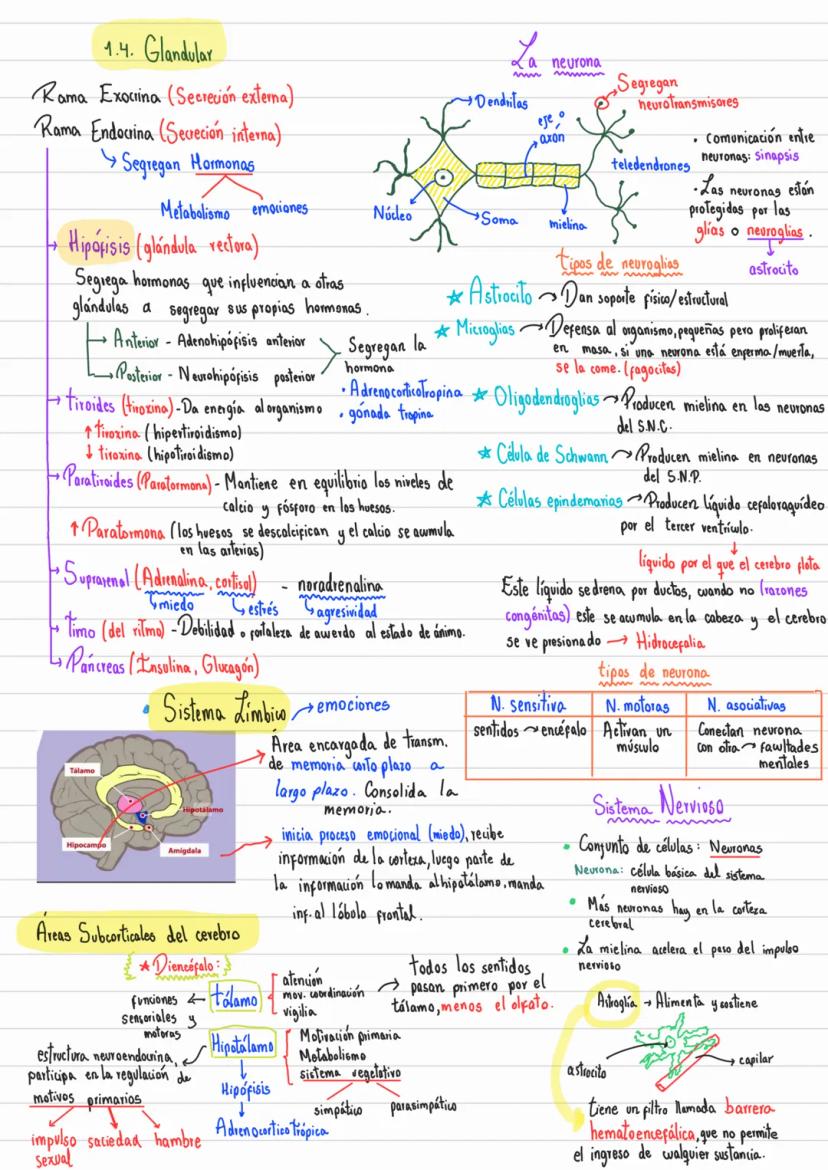 1.4. Glandular
Rama Exocrina (Secreción externa)
Rama Endocrina (Secreción interna)
Segregan Hormonas
Metabolismo emociones
Hipófisis (glándula rectora)
Segrega hormonas que influencian a otras
glándulas a segregar sus propias hormonas.
Anterior - Adenohipófisis anterior
Posterior - Neurohipófisis posterior
Segregan la
hormona
• Adrenocorticotropina
• gónada tropina
tiroides (tiroxina) - Da energía al organismo
↑ tiroxina (hipertiroidismo)
↓ tiroxina (hipotiroidismo)
Paratiroides (Paratormona) - Mantiene en equilibrio los niveles de
calcio y fósforo en los huesos.
↑ Paratormona (los huesos se descalcifican y el calcio se acumula
en las arterias)
Suprarenal (Adrenalina, cortisol) - noradrenalina
miedo estrés agresividad
timo (del ritmo) - Debilidad o fortaleza de acuerdo al estado de ánimo.
Páncreas (Insulina, Glucagón)
La neurona
Dendritas
eje o
axón
Segregan
neurotransmisores
teledendrones
Núcleo
Soma
mielina
• Comunicación entre
neuronas: sinapsis
• Las neuronas están
protegidas por las
glías o neuroglias.
astrocito
tipos de neuroglias
Astrocito → Dan soporte físico/estructural
Microglias → Defensa al organismo, pequeñas pero proliferan
en masa, si una neurona está enferma/muerta,
se la come. (fagocitas)
Oligodendroglias → Producen mielina en las neuronas
del S.N.C.
Célula de Schwann → Producen mielina en neuronas
del S.N.P.
Células epindemarias → Producen líquido cefaloraquídeo
por el tercer ventrículo.
líquido por el que el cerebro flota
Este líquido se drena por ductos, cuando no (razones
congénitas) este se acumula en la cabeza y el cerebro
se ve presionado → Hidrocefalia
tipos de neurona
N. sensitiva N. motoras N. asociativas
sentidos → encéfalo Activan un Conectan neurona
músculo con otra → facultades
mentales
Sistema Límbico → emociones
Tálamo
Hipotálamo
Hipocampo
Amígdala
Área encargada de transm.
de memoria corto plazo a
largo plazo. Consolida la
memoria.
inicia proceso emocional (miedo), recibe
información de la corteza, luego parte de
la información lo manda al hipotálamo, manda
inf. al lóbulo frontal.
Sistema Nervioso
• Conjunto de células: Neuronas
Neurona: célula básica del sistema
nervioso
• Más neuronas hay en la corteza
cerebral
• La mielina acelera el paso del impulso
nervioso
Áreas Subcorticales del cerebro
★ Diencéfalo:
funciones
sensoriales y
motoras
tálamo
atención
mov. coordinación
vigilia
todos los sentidos
pasan primero por el
tálamo, menos el olfato.
Hipotálamo
Motivación primaria
Metabolismo
sistema vegetativo
simpático parasimpático
estructura neuroendocrina,
participa en la regulación de
motivos primarios
impulso saciedad hambre
sexual
Hipófisis
Adrenocorticotrópica
Astroglía → Alimenta y sostiene
astrocito
capilar
tiene un filtro llamada barrera
hematoencefálica, que no permite
el ingreso de cualquier sustancia.